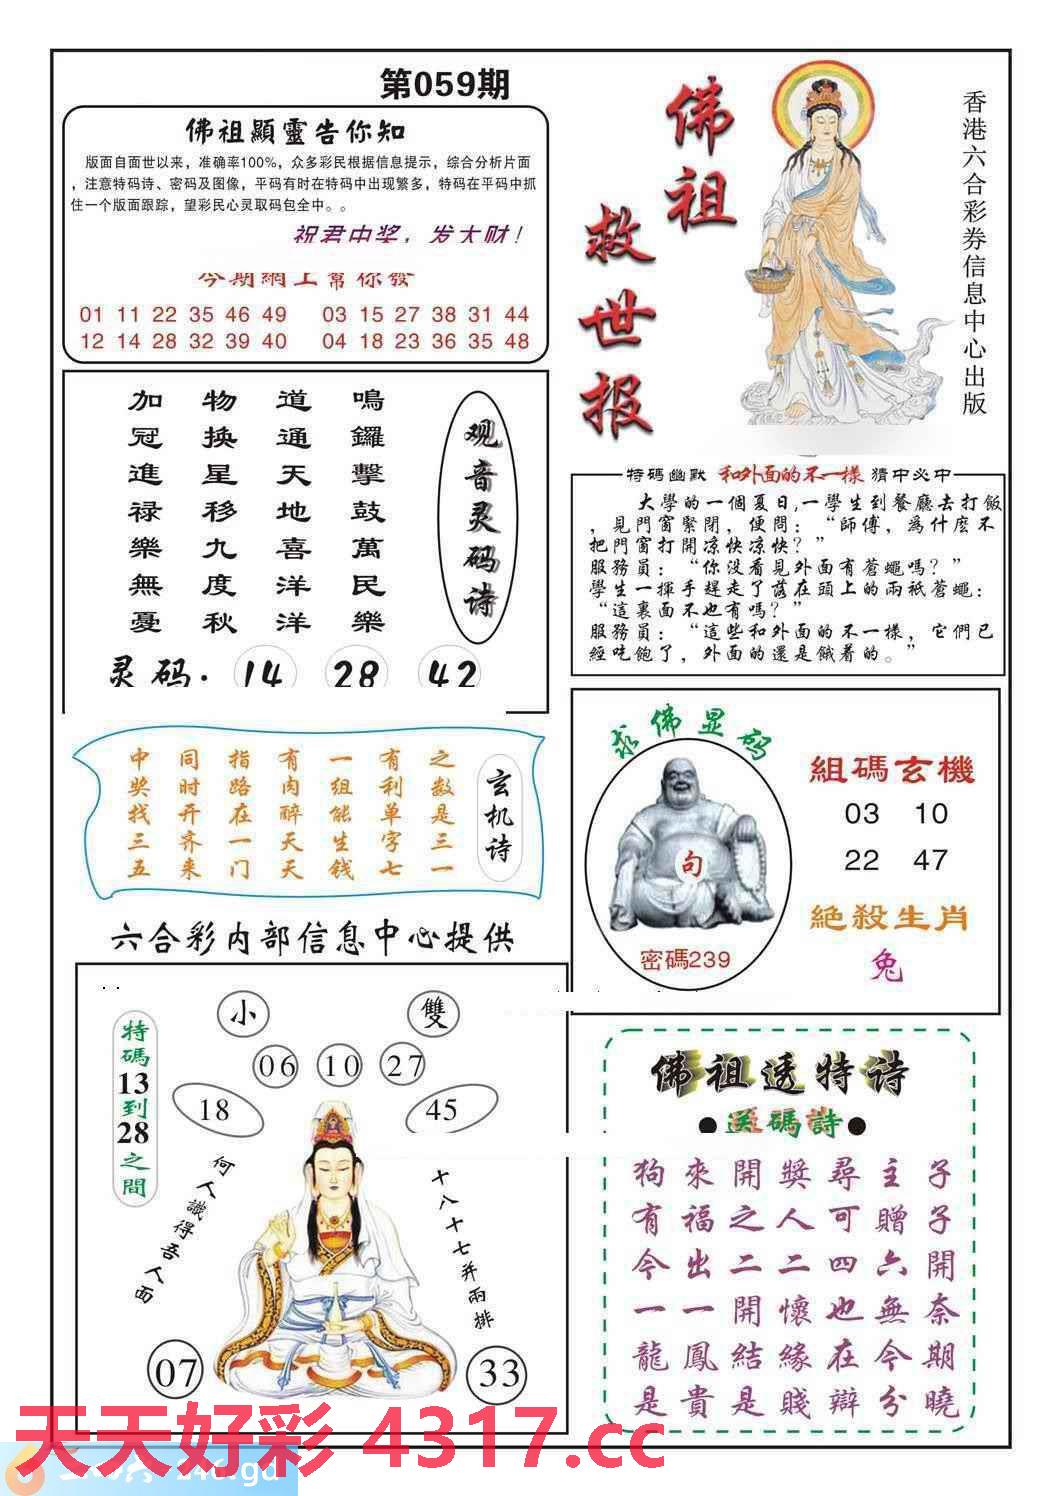 第059期
佛祖顯靈告你知
版面自面世以来，准确率100%，众多彩民根据信息提示，综合分析片面
，注意特码诗、密码及图像，平码有时在特码中出现繁多，特码在平码中抓
住一个版面跟踪，望彩民心灵取码包全中。。
祝君中奖，发大财！
今期網上幫你發
01 11 22 35 46 49 03 15 27 38 31 44
12 14 28 32 39 40 04 18 23 36 35 48
佛祖
救世报
香港六合彩券信息中心出版
加冠進禄樂無憂
物换星移九度秋
道通天地喜洋洋
鳴鑼擊鼓萬民樂
观音灵码诗
灵码．14 28 42
特碼幽默 和外面的不一樣 猜中必中
大學的一個夏日,一學生到餐廳去打飯
，見門窗緊閉，便問：“師傅，為什麽不
把門窗打開凉快凉快？”
服務員：“你没看見外面有蒼蠅嗎？”
學生一揮手趕走了落在頭上的兩衹蒼蠅：
“這裏面不也有嗎？”
服務員：“這些和外面的不一樣，它們已
經吃飽了，外面的還是餓着的。”
中奖找三五
同时开齐来
指路在一门
有肉醉天天
一组能生钱
有利单字七
之数是三一
玄机诗
求佛显码
句
密碼239
組碼玄機
03 10
22 47
絶殺生肖
兔
六合彩内部信息中心提供
特碼13到28之間
小 雙
06 10 27
18 45
何人識得吾人面
十八十七并兩排
07 33
佛祖透特诗
●送碼詩●
狗來開獎尋主子
有福之人可贈子
今出二二四六開
一一開懷也無奈
龍鳳結緣在今期
是貴是賤辯分曉
天天好彩 4317.cc
246.gd